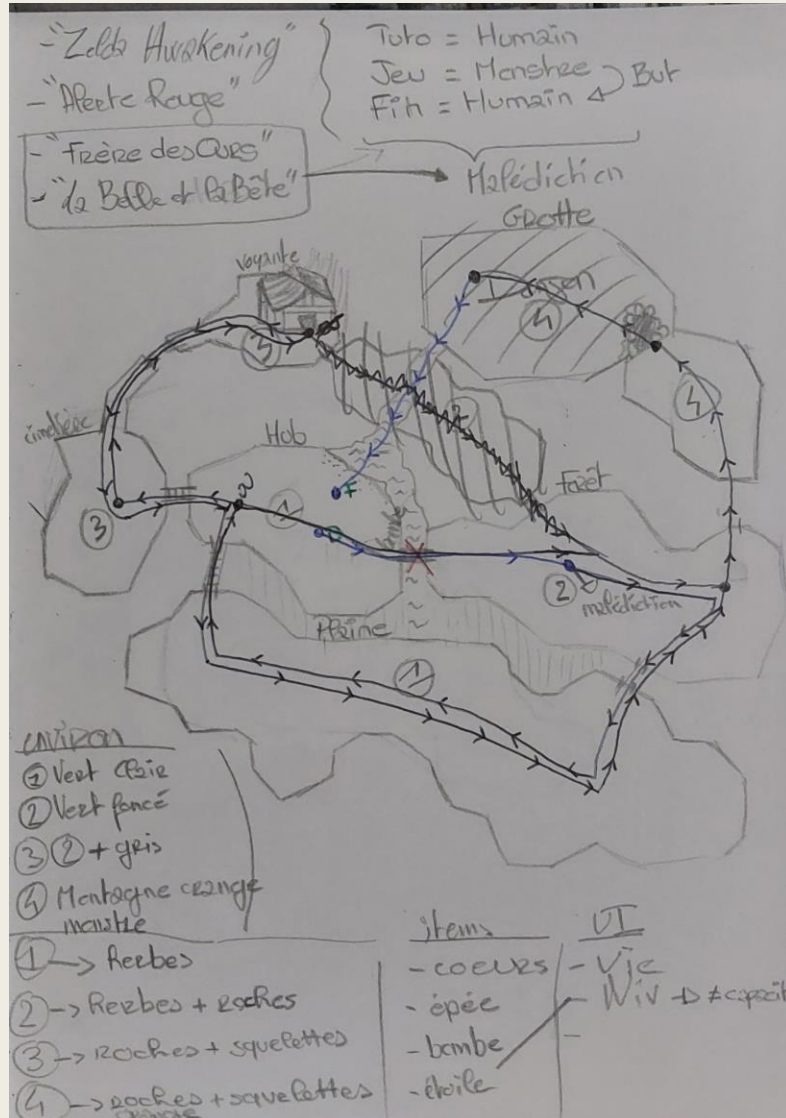 - "Zelda Awakening"
- "Alerte Rouge"
- "Frère des Ours"
- "La Belle et la Bête"
Tuto = Humain
Jeu = Monstre
Fin = Humain
But
Malédiction
GROTTE
Voyante
Donjon
4
3
4
2
cimetière
Hub
Forêt
1
3
F
D
2
malédiction
Plaine
1
environ
1 Vert clair
2 Vert foncé
3 2 + gris
4 Montagne orange
monstre
1 -> Herbes
2 -> Herbes + Roches
3 -> Roches + squelettes
4 -> Roches + squelettes
orange
items
- coeurs
- épée
- bombe
- étoile
UI
- Vie
- Niv -> ≠ capacit
-